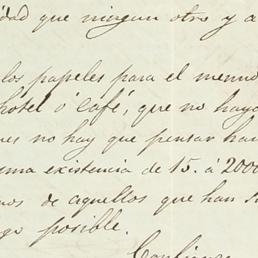 idad que ningun otro y a
los papeles para el menu
hotel ó café, que no haya
es no hay que pensar
una existencia de 15. á 2000
nos de aquellos que han
go posible.